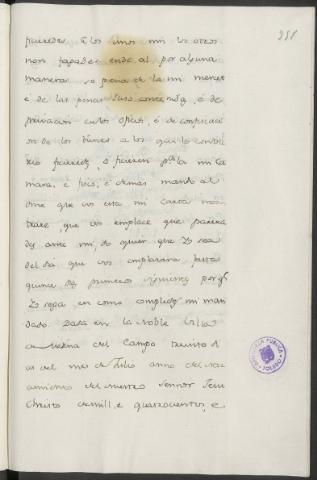 351
ficieredes. E los unos nin los otros
non fagades ende al por alguna
manera so pena de la mi merced
é de las penas suso contenidas, é de
privacion de los oficios, é de confiscacion
de los bienes a los que lo contra
rio ficieredes, é ficieren para la mi Ca
mara, e fisco, é demas mando al
ome que vos esta mi carta mos
trare, que vos emplace que parezca
des ante mi, do quier que Yo sea
del dia que vos emplazare, fasta
quince dias primeros siguientes porque
Yo sepa en como complides mi man
dado. Dada en la Noble Villa
de Medina del Campo treinta di
as del mes de Julio anno del nas
cimiento del nuestro Sennor Jesu
Christo de mill, e quatrocientos, e
BIBLIOTECA PUBLICA
TOLEDO